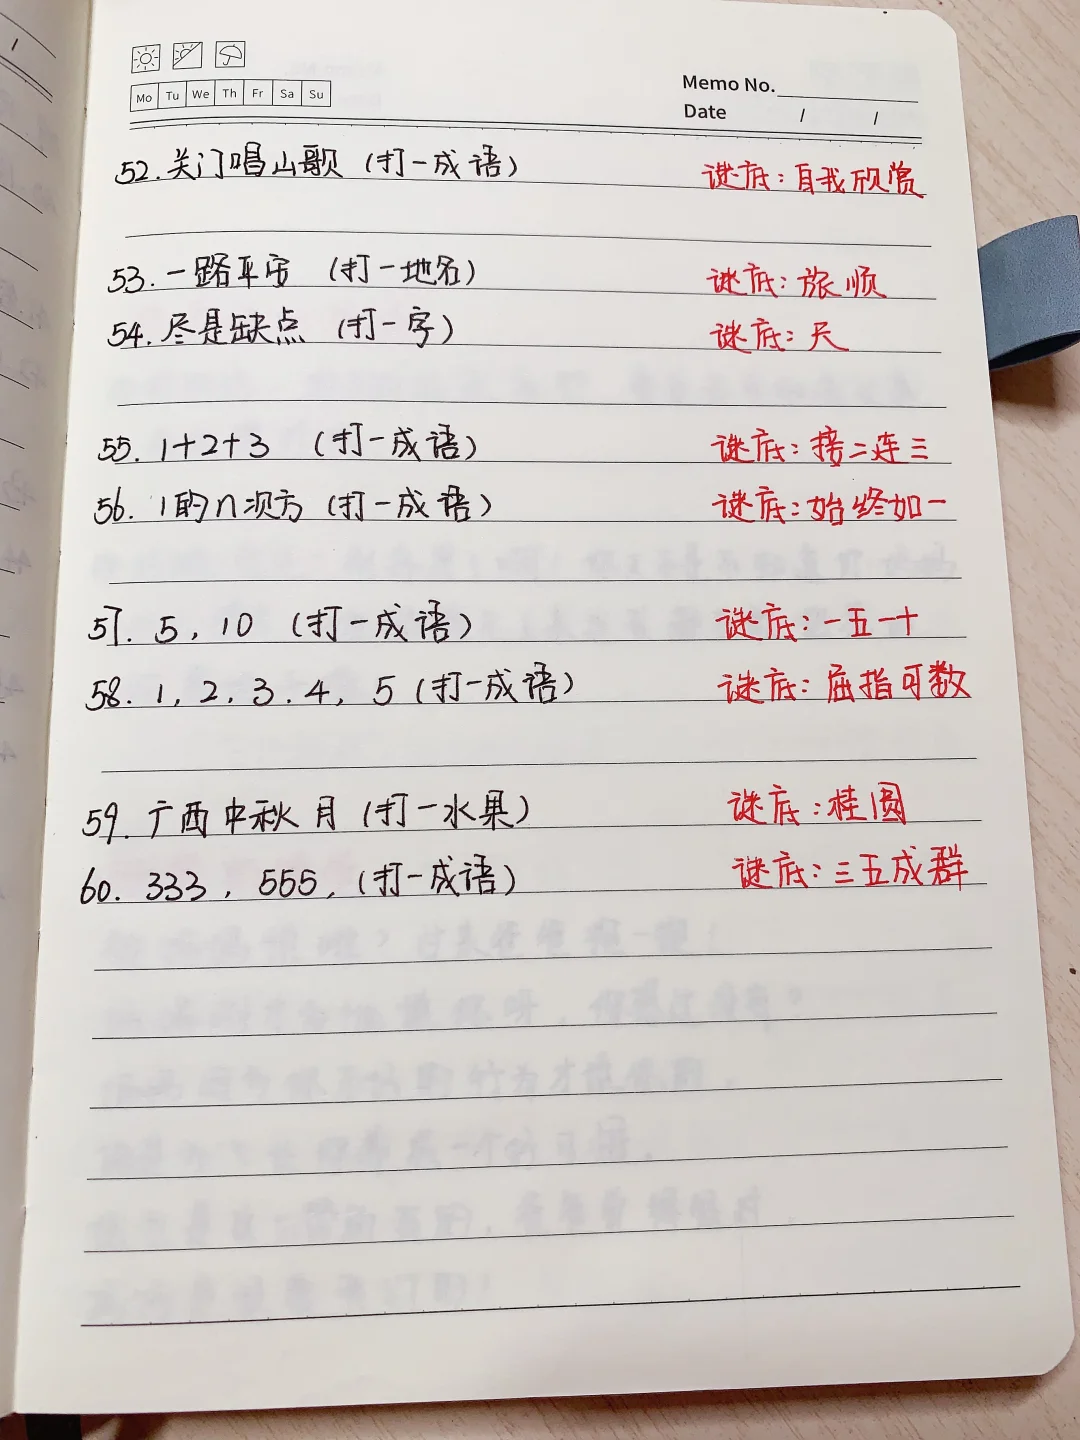 Mo Tu We Th Fr Sa Su
Memo No.
Date / /
52. 关门唱山歌 (打一成语) 谜底: 自我欣赏
53. 一路平安 (打一地名) 谜底: 旅顺
54. 尽是缺点 (打一字) 谜底: 尺
55. 1+2+3 (打一成语) 谜底: 接二连三
56. 1的n次方 (打一成语) 谜底: 始终如一
57. 5, 10 (打一成语) 谜底: 一五一十
58. 1, 2, 3. 4, 5 (打一成语) 谜底: 屈指可数
59. 广西中秋月 (打一水果) 谜底: 桂圆
60. 333, 555, (打一成语) 谜底: 三五成群